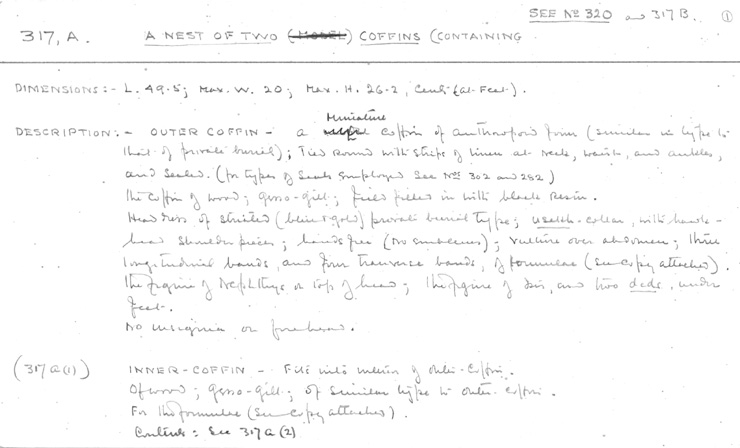 SEE Nº 320 and 317 B. ①
317, A. A NEST OF TWO (MODEL) COFFINS (CONTAINING
DIMENSIONS:- L. 49.5; Max. W. 20; Max. H. 26.2, Cent: (at Feet).
Miniature
DESCRIPTION:- OUTER COFFIN - a coffin of anthropoid form (similar in type to
that of private burial); Tied round with strips of linen at neck, waist, and ankles,
and sealed. (for types of seals employed see Nos 302 and 252)
The coffin of wood; gesso-gilt; field filled in with black Resin.
Head dress of striated (blue & gold) private burial type; usekh-collar, with hawk-
head shoulder pieces; hands free (no emblems); vulture over abdomen; three
longitudinal bands, and four transverse bands, of formulae (see copy attached).
The figure of Nephthys on top of head; The figure of Isis, and two deds, under
feet.
No insignia on forehead.
(317 a (1)) INNER-COFFIN - Fits into interior of outer-coffin.
Of wood; gesso-gilt; of similar type to outer coffin.
For the formulae (see copy attached).
Contents: See 317 a (2)